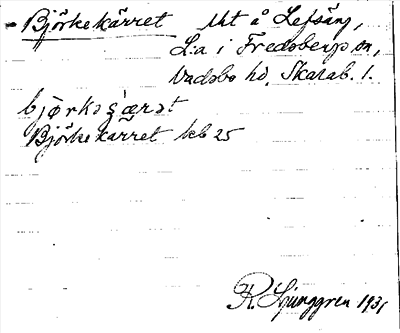 Björkekärret Uht å Lefsäng,
L:a i Fredsbergs sn,
Vadsbo hd, Skarab. l.
björkəçærət
Björkekärret hcb 25
R. Ljunggren 1931